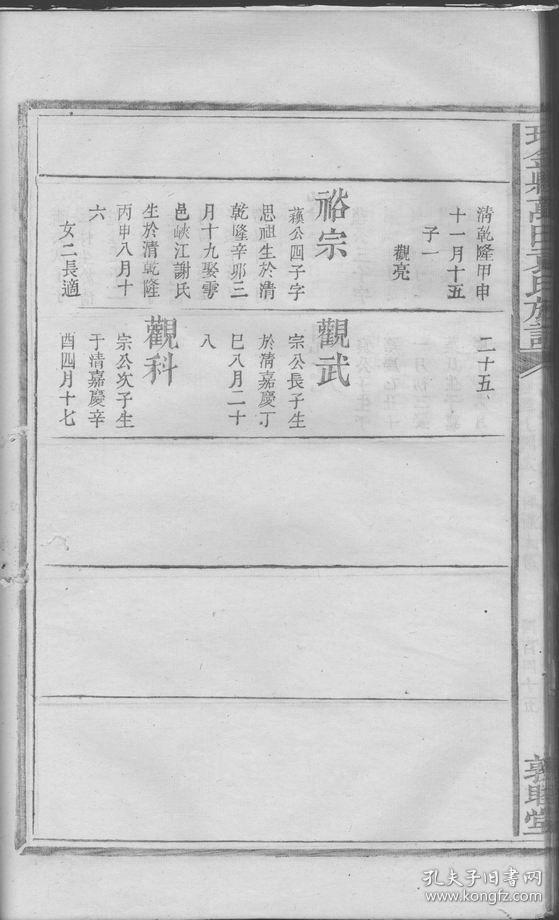 瑞金縣萬田袁氏族譜
敦睦堂
清乾隆甲申
十一月十五
子一
觀亮
裕宗
蘋公四子字
思祖生於清
乾隆辛卯三
月十九娶雩
邑峽江謝氏
生於清乾隆
丙申八月十
六
女二長適
二十五
觀武
宗公長子生
於清嘉慶丁
巳八月二十
八
觀科
宗公次子生
于清嘉慶辛
酉四月十七
孔夫子旧书网
book.kongfz.com